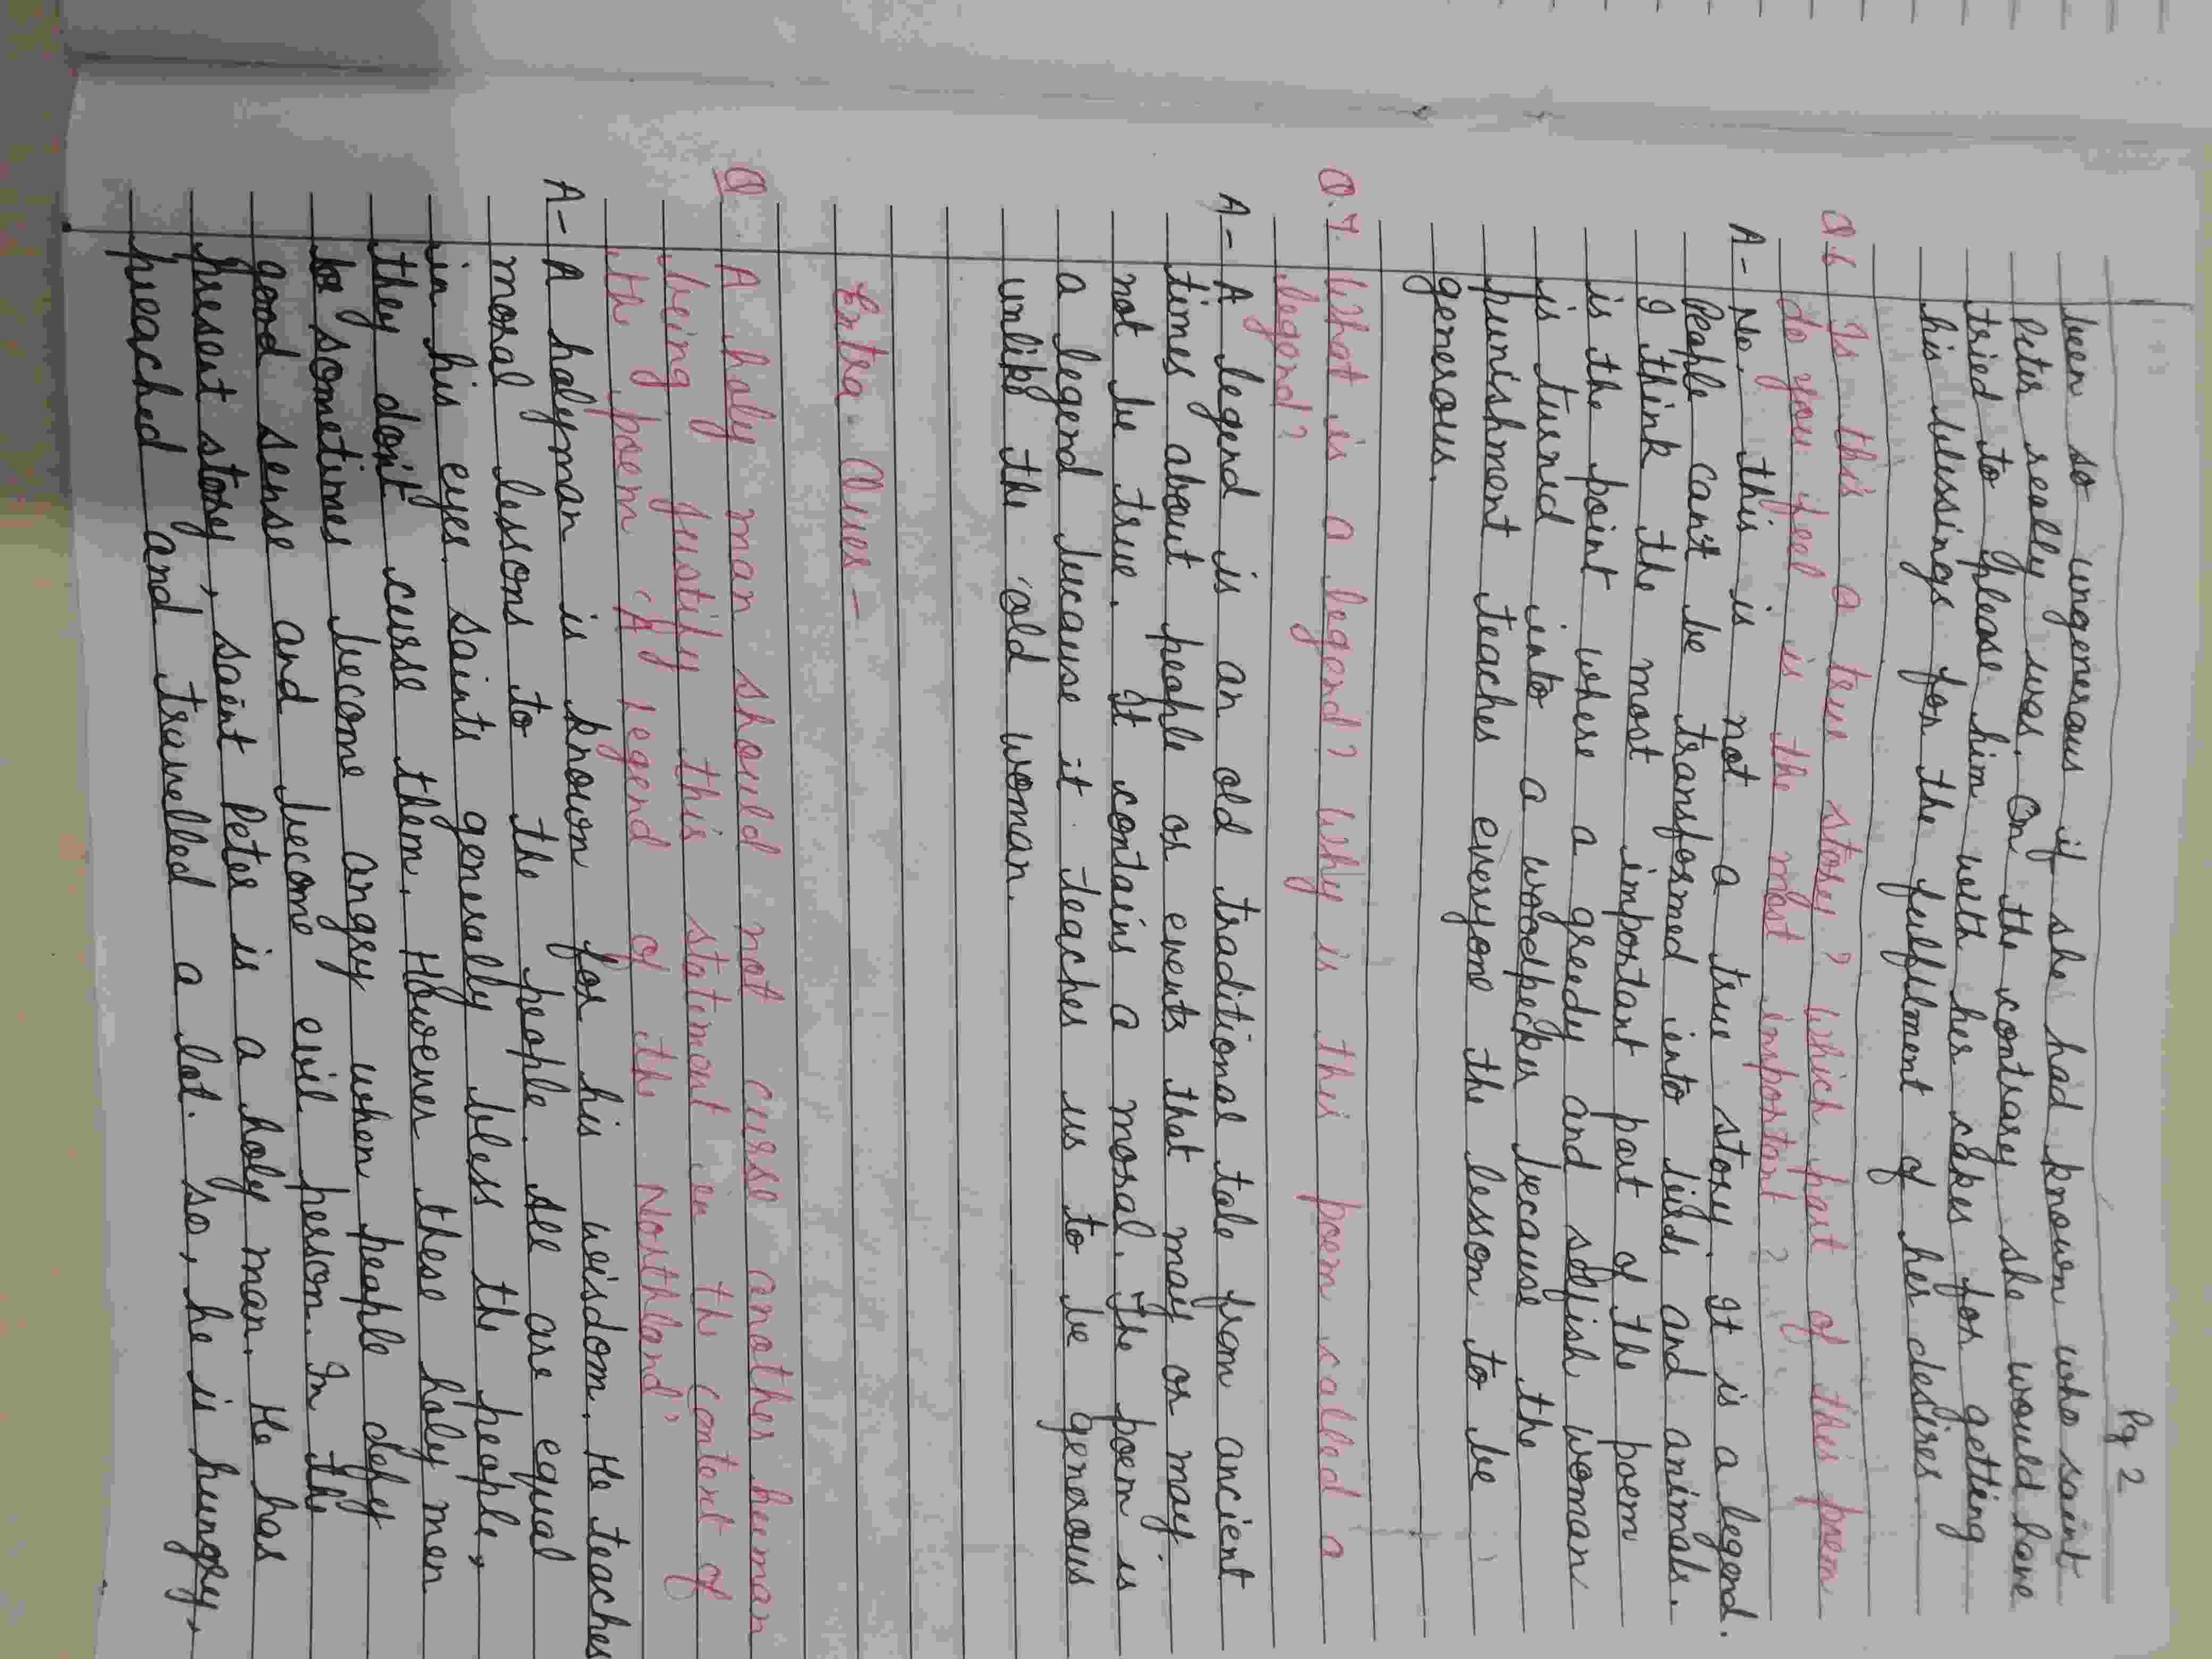 Pg 2
been so ungenerous if she had known who saint
Peter really was. On the contrary she would have
tried to please him with her cakes for getting
his blessings for the fulfilment of her desires.
Q.6 Is this a true story? Which part of this poem
do you feel is the most important?
A- No, this is not a true story. It is a legend.
People can't be transformed into birds and animals.
I think the most important part of the poem
is the point where a greedy and selfish woman
is turned into a woodpecker because the
punishment teaches everyone the lesson to be
generous.
Q.7. What is a legend? Why is this poem called a
legend?
A- A legend is an old traditional tale from ancient
times about people or events that may or may
not be true. It contains a moral. The poem is
a legend because it teaches us to be generous
unlike the old woman.
Extra Ques-
Q A holy man should not curse another human
being justify this statement in the context of
the poem 'A legend of the Northland'
A- A holyman is known for his wisdom. He teaches
moral lessons to the people. All are equal
in his eyes. saints generally bless the people,
they don't curse them. However these holy men
sometimes become angry when people defy
good sense and become evil person. In the
present story, saint Peter is a holy man. He has
preached and travelled a lot. So, he is hungry,